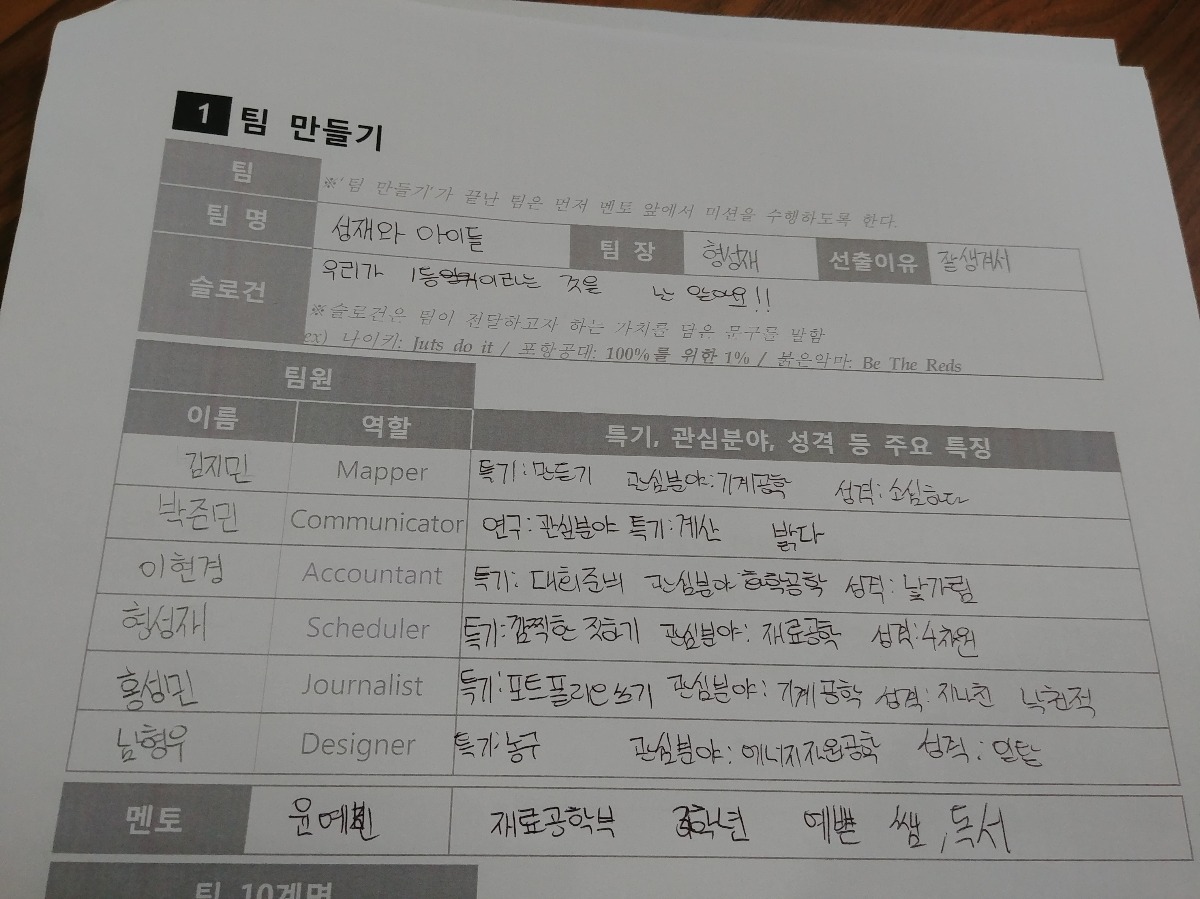 1 팀 만들기
팀
※'팀 만들기'가 끝난 팀은 먼저 멘토 앞에서 미션을 수행하도록 한다.
팀 명 성재와 아이들 팀 장 형성재 선출이유 잘생겨서
슬로건 우리가 1등이라는 것을 난 알아요!!
※슬로건은 팀이 전달하고자 하는 가치를 담은 문구를 말함
ex) 나이키: Juts do it / 포항공대: 100%를 위한 1% / 붉은악마: Be The Reds
팀원
이름 역할 특기, 관심분야, 성격 등 주요 특징
김지민 Mapper 특기:만들기 관심분야:기계공학 성격:소심하다
박준민 Communicator 연구:관심분야 특기:계산 밝다
이현경 Accountant 특기: 대회준비 관심분야 화학공학 성격: 낯가림
형성재 Scheduler 특기:깜찍한 짓하기 관심분야: 재료공학 성격:4차원
홍성민 Journalist 특기:포트폴리오쓰기 관심분야: 기계공학 성격: 지나친 낙천적
남형우 Designer 특기:농구 관심분야: 에너지자원공학 성격: 일탈
멘토 윤예 재료공학부 학년 예쁜 쌤, 독서
팀 10계명